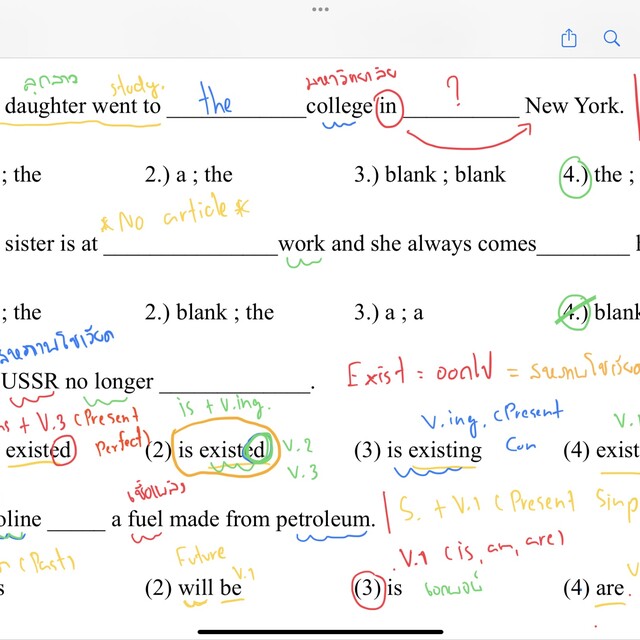 ลูกสาว study. มหาวิทยาลัย
daughter went to ________ the ________ college in ________ ? New York.
; the 2.) a ; the 3.) blank ; blank 4.) the ;
* No article *
sister is at ________ work and she always comes ________
; the 2.) blank ; the 3.) a ; a 4.) blank
สหภาพโซเวียต
USSR no longer ________.
Exist : ออกไป =
is + V.ing.
+ V.3 (Present Perfect)
V.ing. (Present Con
existed (2) is existed V.2 V.3 (3) is existing (4) exist
เชื้อเพลิง
oline ____ a fuel made from petroleum. S. + V.1 (Present Simp
(Past) Future V.1 V.1 (is, am, are)
s (2) will be (3) is (4) are